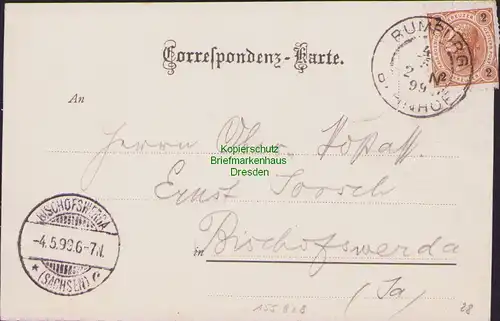 RUMBURG
4
5
2 N
99
BAHNHOF
2
Correspondenz-Karte.
An
Kopierschutz
Briefmarkenhaus
Dresden
Herrn
Ernst
BISCHOFSWERDA
-4.5.99.6-7N.
* (SACHSEN) c
in Bischofswerda
(Sa)
155828
28